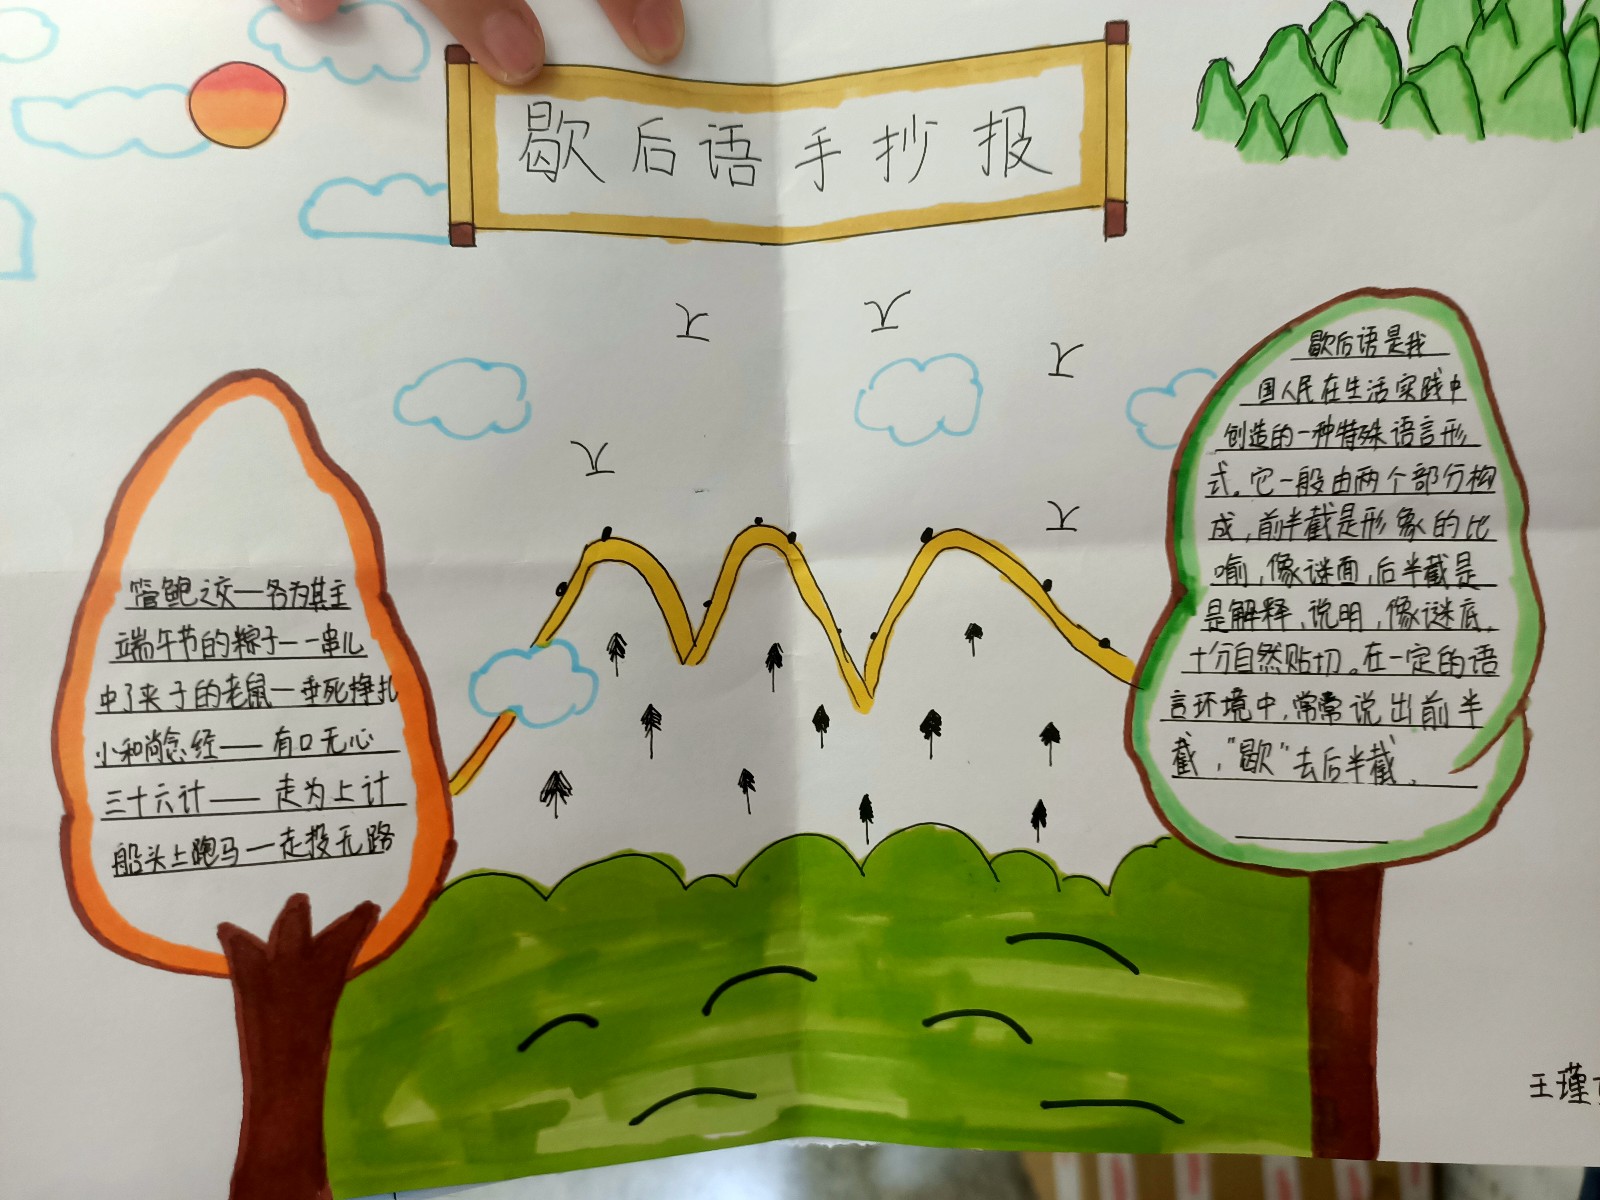 歇后语手抄报
管鲍之交—各为其主
端午节的粽子——串儿
中了夹子的老鼠—垂死挣扎
小和尚念经——有口无心
三十六计——走为上计
船头上跑马—走投无路
歇后语是我
国人民在生活实践中
创造的一种特殊语言形
式。它一般由两个部分构
成,前半截是形象的比
喻,像谜面,后半截是
是解释、说明,像谜底,
十分自然贴切。在一定的语
言环境中,常常说出前半
截,"歇"去后半截。
王瑾